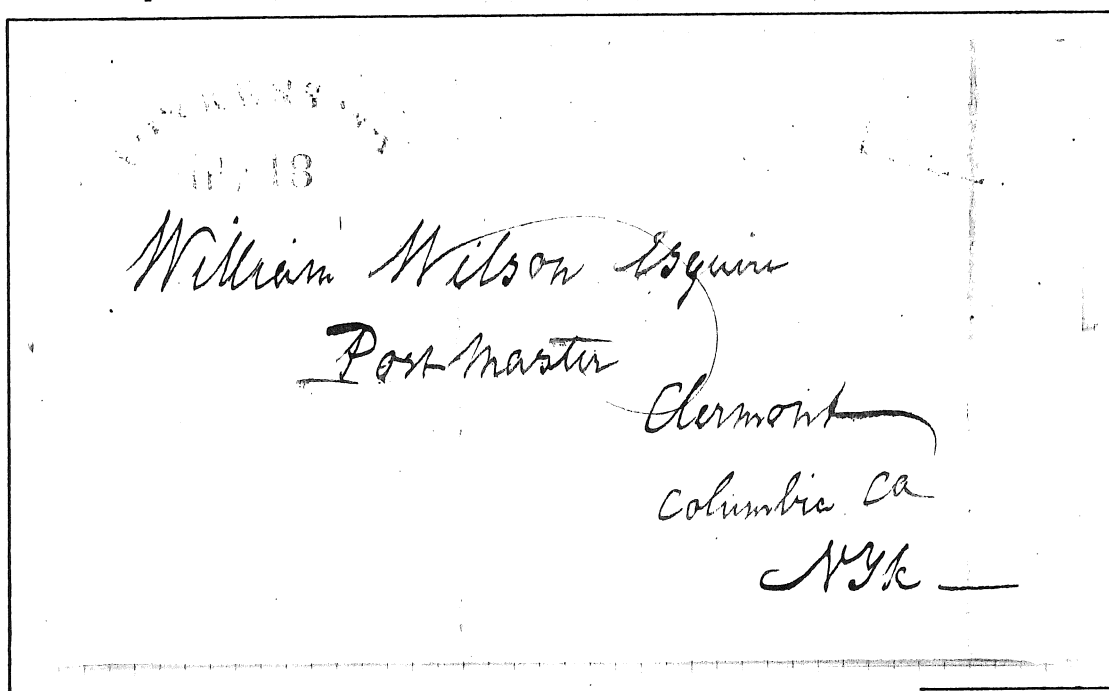 18
William Wilson Esquire
Post Master
Clermont
Columbia Co
NYk